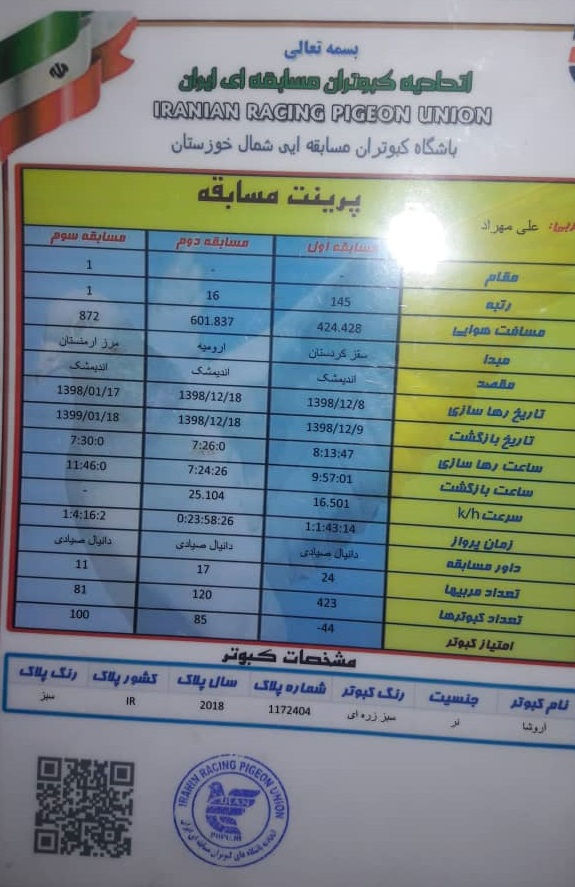 بسمه تعالی
اتحادیه کبوتران مسابقه ای ایران
IRANIAN RACING PIGEON UNION
باشگاه کبوتران مسابقه ایی شمال خوزستان
پرینت مسابقه
علی مهراد
مسابقه اول مسابقه دوم مسابقه سوم
مقام - - 1
رتبه 145 16 1
مسافت هوایی 424.428 601.837 872
مبدا سقز کردستان ارومیه مرز ارمنستان
مقصد اندیمشک اندیمشک اندیمشک
تاریخ رها سازی 1398/12/8 1398/12/18 1398/01/17
تاریخ بازگشت 1398/12/9 1398/12/18 1399/01/18
ساعت رها سازی 8:13:47 7:26:0 7:30:0
ساعت بازگشت 9:57:01 7:24:26 11:46:0
سرعت k/h 16.501 25.104 -
زمان پرواز 1:1:43:14 0:23:58:26 1:4:16:2
داور مسابقه دانیال صیادی دانیال صیادی دانیال صیادی
تعداد مربیها 24 17 11
تعداد کبوترها 423 120 81
امتیاز کبوتر -44 85 100
مشخصات کبوتر
نام کبوتر جنسیت رنگ کبوتر شماره پلاک سال پلاک کشور پلاک رنگ پلاک
آروشا نر سبز زره ای 1172404 2018 IR سبز
IRANIN RACING PIGEON UNION
IRAN